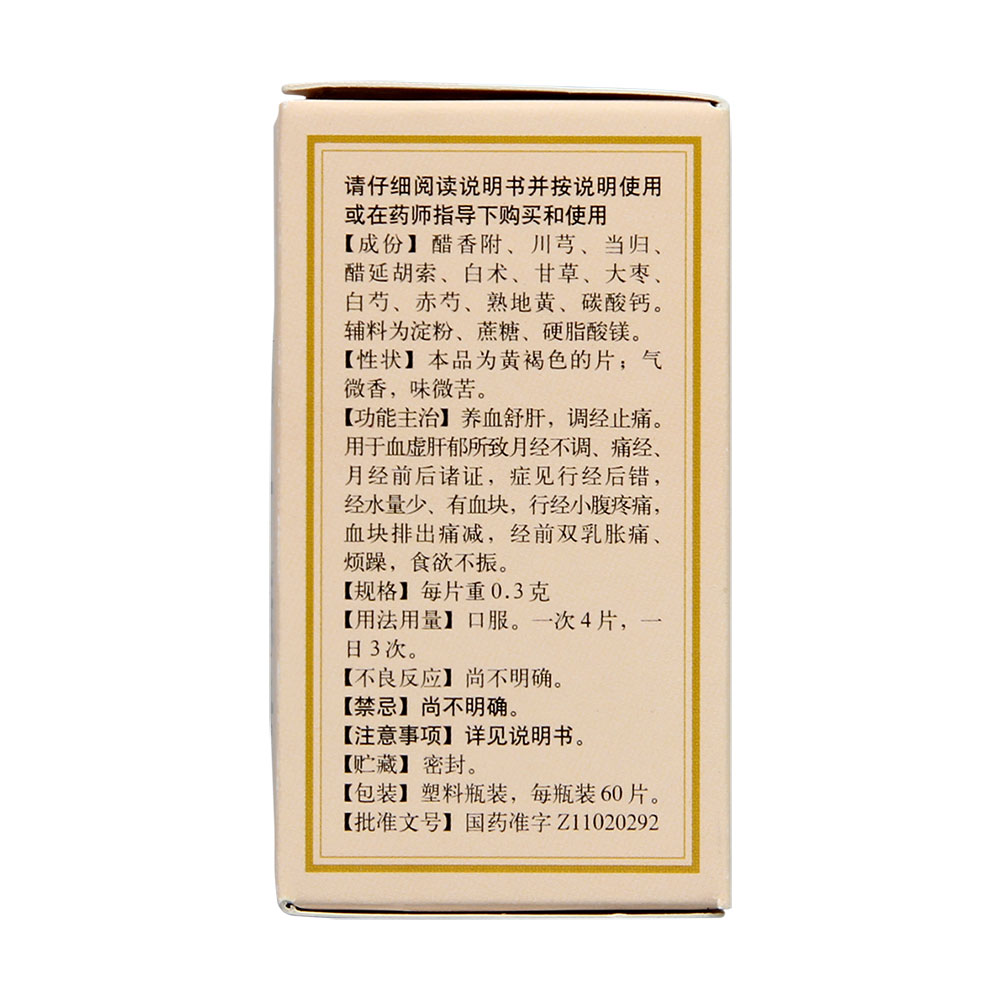 请仔细阅读说明书并按说明使用
或在药师指导下购买和使用
【成份】醋香附、川芎、当归、
醋延胡索、白术、甘草、大枣、
白芍、赤芍、熟地黄、碳酸钙。
辅料为淀粉、蔗糖、硬脂酸镁。
【性状】本品为黄褐色的片；气
微香，味微苦。
【功能主治】养血舒肝，调经止痛。
用于血虚肝郁所致月经不调、痛经、
月经前后诸证，症见行经后错，
经水量少、有血块，行经小腹疼痛，
血块排出痛减，经前双乳胀痛、
烦躁，食欲不振。
【规格】每片重0.3克
【用法用量】口服。一次4片，一
日3次。
【不良反应】尚不明确。
【禁忌】尚不明确。
【注意事项】详见说明书。
【贮藏】密封。
【包装】塑料瓶装，每瓶装60片。
【批准文号】国药准字Z11020292